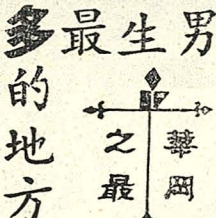 男生最多
的地方
華岡
之最